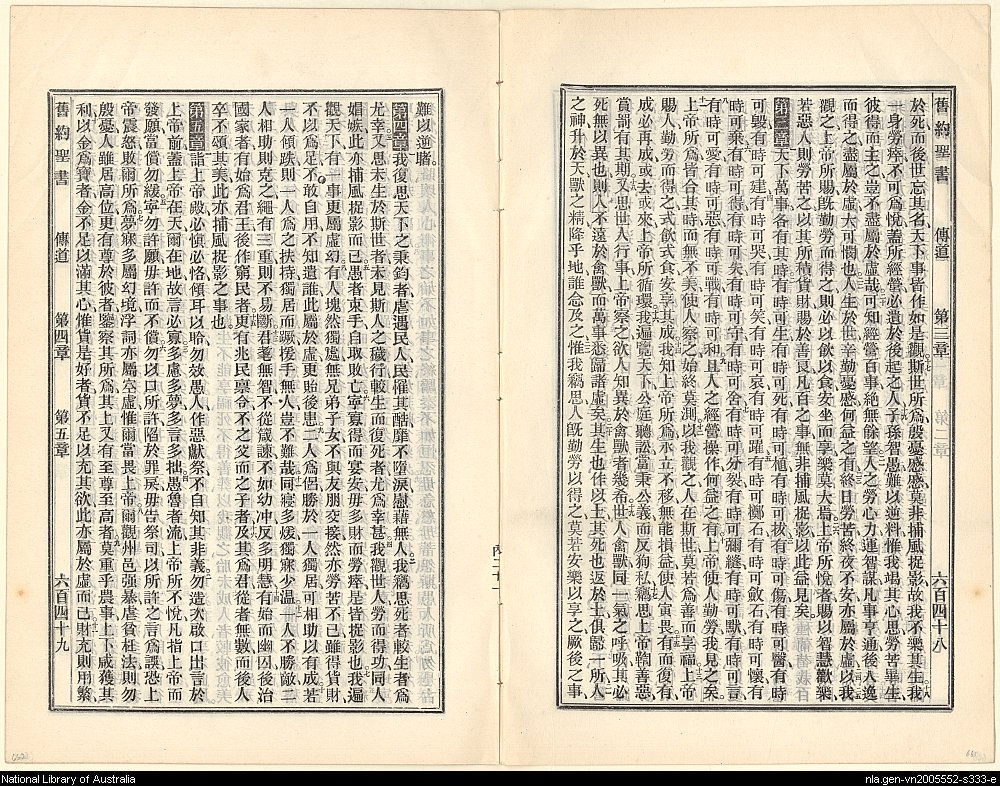 舊約聖書　傳道　第三章　六百四十八
於死而後世忘其名天下事皆作如是觀斯世所爲殷憂慼慼莫非捕風捉影故我不樂其生我
一身勞瘁不可爲悅蓋所經營必遺於後起之人子孫智愚難以逆料惟我竭其心思勞苦畢生
彼得而主之豈不盡屬於虛哉可知經營百事絕無餘望人之勞心力運智謀凡事亨通後人逸
而得之盡屬於虛大可憫也人生於世辛勤憂慼何益之有終日勞苦終夜不安亦屬於虛以我
觀之上帝所賜旣勤勞而得之則必以飲以食安坐而享樂莫大焉上帝所悅者賜以智慧歡樂
若惡人則勞苦之以其所積貨財賜於善良凡百之事無非捕風捉影以此益見矣
第三章天下萬事各有其時有時可生有時可死有時可植有時可拔有時可傷有時可醫有時
可毀有時可建有時可哭有時可笑有時可哀有時可躍有時可擲石有時可斂石有時可懷有
時可棄有時可得有時可失有時可守有時可舍有時可分裂有時可彌縫有時可默有時可言
有時可愛有時可惡有時可戰有時可和且人之經營操作何益之有上帝使人勤勞我見之矣
上帝所爲皆合其時而無不美使人察之始終莫測以我觀之人在斯世莫若爲善而享福上帝
賜人勤勞而得之式飲式食安享其成我知上帝所爲永立不移無能損益使人寅畏有而復有
成必再成或去或來上帝所循環我遍覽天下公庭聽訟當秉公義而反狥私竊思上帝鞫善惡
賞罰有其期又思世人行事上帝察之欲人知異於禽獸者幾希世人禽獸同一氣之呼吸其必
死無以異也則人不遠於禽獸而萬事悉歸諸虛矣其生也作以土其死也返於土俱歸一所人
之神升於天獸之精降乎地誰念及之惟我竊思人旣勤勞以得之莫若安樂以享之厥後之事
丙二十一
難以逆睹
第四章我復思天下之秉鈞者虐遇民人民人罹其酷靡不墮淚慰藉無人我竊思死者較生者爲
尤幸又思未生於斯世者未見斯人之穢行較生而復死者尤爲幸甚我觀世人勞而得功同人
娼嫉此亦捕風捉影而已愚者束手自取敗亡寧寡得而宴安毋多財而勞瘁是皆捉影也我遍
觀天下有一事更屬虛幻有人塊然獨處無兄弟子女不與友朋交接然亦勞苦不已雖得貨財
不以爲足不敢自用不知遺誰此屬於虛更貽後患二人爲侶勝於一人獨居可相助以有成若
一人傾跌則一人爲之扶持獨居而蹶援手無人豈不難哉同寢多煖獨寐少溫一人不勝敵二
人相助則克之繩有三重則不易斷君耄無智不從箴諫不如幼冲反多明慧有始而幽囚後治
國家者有始爲君王後作窮民者更有兆民禀命不之父而之子者及其爲君從者無數而後人
卒不頌其美此亦捕風捉影之事也
第五章詣上帝殿必愼必恪傾耳以聆勿效愚人作惡獻祭不自知其非義勿造次啟口出言於
上帝前蓋上帝在天爾在地故言必寡多慮多夢多言多拙愚魯者流上帝所不悅凡指上帝而
發願當償勿緩寧勿許願毋許而不償勿以口所許陷於罪戾毋告祭司以所許之言爲誤恐上
帝震怒敗爾所爲夢寐多屬幻境浮詞亦屬空虛惟爾當畏上帝爾觀州邑强暴虐貧枉法則勿
殷憂人雖居高位更有尊於彼者鑒察其所爲其上又有至尊至高者莫重乎農事上下咸獲其
利以金爲寶者金不足以滿其心惟貨是好者貨不足以充其欲此亦屬於虛而已財充則用繁
舊約聖書　傳道　第四章　第五章　六百四十九
National Library of Australia
nla.gen-vn2005552-s333-e